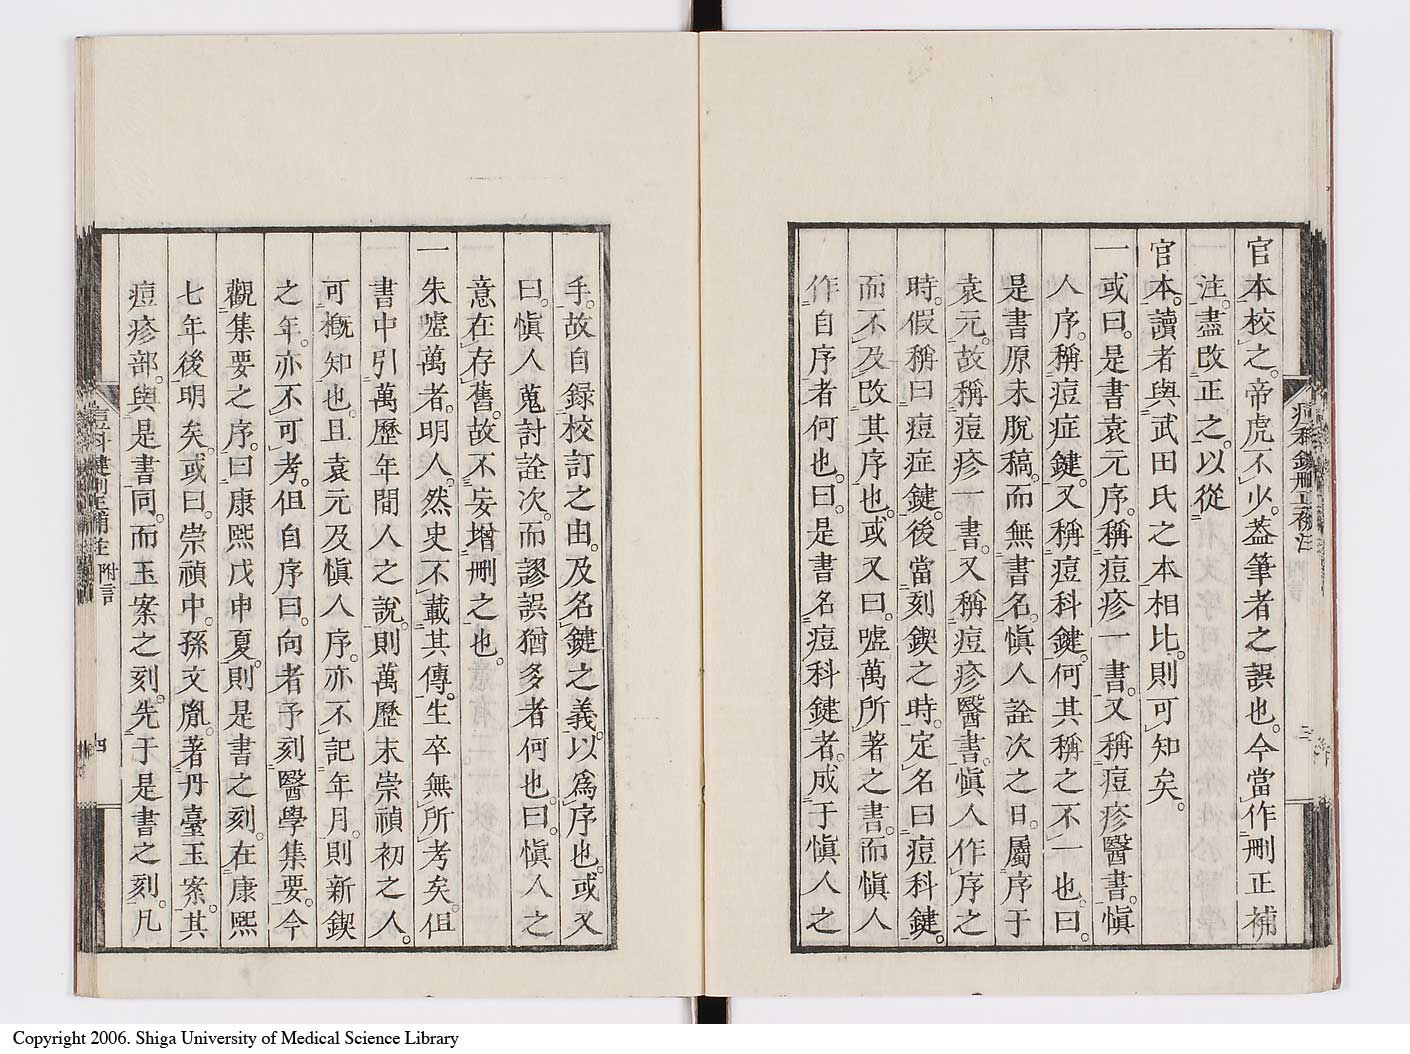 官本校之。帝虎不少。蓋筆者之誤也。今當作刪正補
注。盡改正之。以從
官本。讀者與武田氏之本相比。則可知矣。
一或曰。是書袁元序。稱痘疹一書。又稱痘疹醫書。愼
人序。稱痘症鍵。又稱痘科鍵。何其稱之不一也。曰。
是書原未脫稿。而無書名。愼人詮次之日。屬序于
袁元。故稱痘疹一書。又稱痘疹醫書。愼人作序之
時。假稱曰痘症鍵。後當刻鍥之時。定名曰痘科鍵。
而不及改其序也。或又曰。噓萬所著之書。而愼人
作自序者何也。曰。是書名痘科鍵者。成于愼人之
三
手。故自録校訂之由。及名鍵之義。以爲序也。或又
曰。愼人蒐討詮次。而謬誤猶多者何也。曰。愼人之
意在存舊。故不妄增刪之也。
一朱噓萬者。明人。然史不載其傳。生卒無所考矣。但
書中引萬歷年間人之說。則萬歷末崇禎初之人。
可概知也。且袁元及愼人序。亦不記年月。則新鍥
之年。亦不可考。但自序曰。向者予刻醫學集要。今
觀集要之序。曰康熙戊申夏。則是書之刻。在康熙
七年後明矣。或曰。崇禎中。孫文胤。著丹臺玉案。其
痘疹部。與是書同。而玉案之刻。先于是書之刻。凡
痘科鍵刪正補注 附言
四
Copyright 2006. Shiga University of Medical Science Library